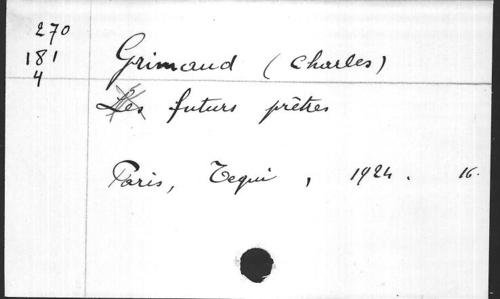 270
181
4
Grimaud (Charles)
Les futurs prêtres
Paris, Tequi, 1924. 16.